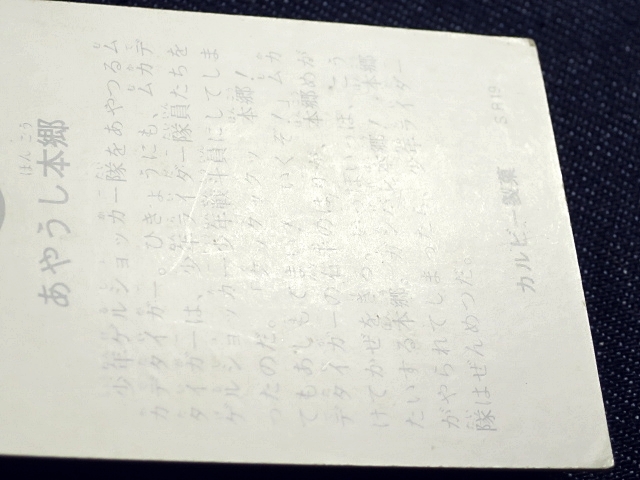 あやうし本郷
ほんごう
少年ゲルショッカー隊をあやつるム
カデタイガー。ひきょうにも、ムカデ
タイガーは、少年ライダー隊員たちを
ゲルショッカー少年戦斗員にしてしま
ったのだ。 本郷!
てもあしもでまい! いくぞ!」ムカ
デタイガーの 本郷めが
けてかぜをきる。
たいする本郷。ガンバレ本郷!
がやられてしまったら、少年ライダー
隊はぜんめつだ。
カルビー製菓